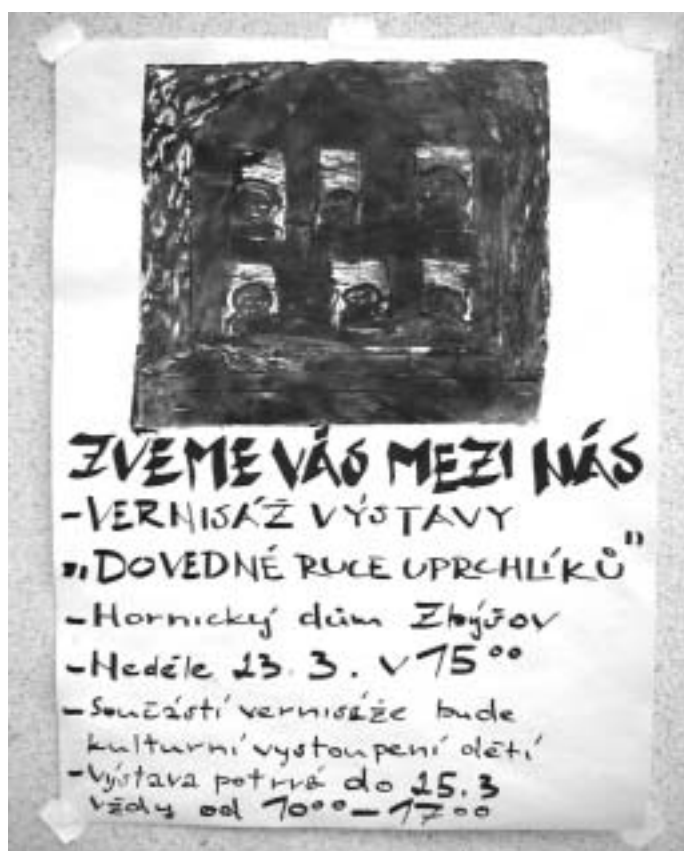 ZVEME VÁS MEZI NÁS
-VERNISÁŽ VÝSTAVY
„DOVEDNÉ RUCE UPRCHLÍKŮ"
-Hornický dům Zbýšov
-Neděle 23. 3. v 15⁰⁰
-Součástí vernisáže bude
kulturní vystoupení dětí
-Výstava potrvá do 25.3
vždy od 10⁰⁰-17⁰⁰